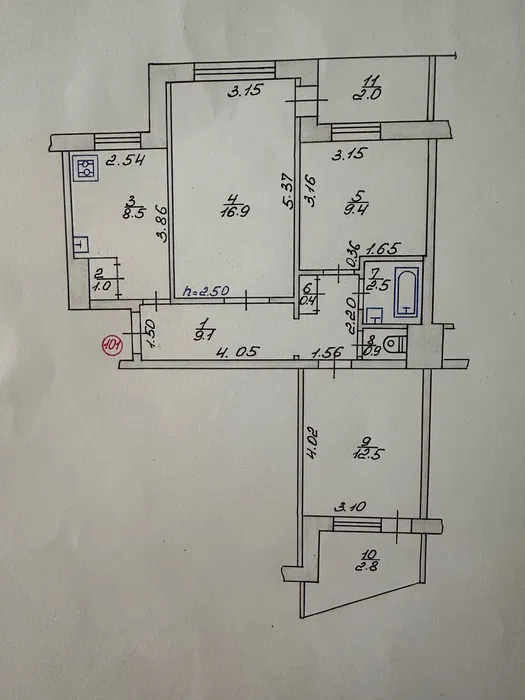 3.15
11
2.0
2.54
3.15
3
8.5
3.86
4
16.9
5.37
3.16
5
9.4
2
1.0
0.36
1.65
h=2.50
6
0.4
7
2.5
101
1.50
1
9.1
2.20
8
0.9
4.05
1.56
4.02
9
12.5
3.10
10
2.8